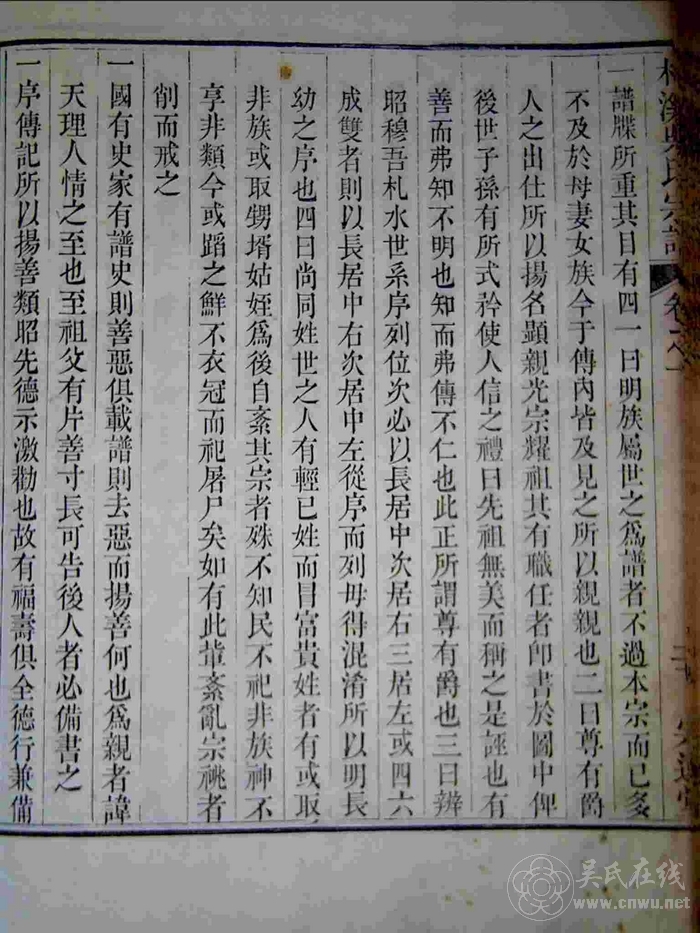 吳氏宗譜
一譜牒所重其目有四一曰明族屬世之爲譜者不過本宗而已多
不及於母妻女族今于傳內皆及見之所以親親也二曰尊有爵
人之出仕所以揚名顯親光宗耀祖其有職任者即書於圖中俾
後世子孫有所式矜使人信之禮曰先祖無美而稱之是誣也有
善而弗知不明也知而弗傳不仁也此正所謂尊有爵也三曰辨
昭穆吾札水世系序列位次必以長居中次居右三居左或四六
成雙者則以長居中右次居中左從序而列毋得混淆所以明長
幼之序也四曰尚同姓世之人有輕已姓而冒富貴姓者有或取
非族或取甥壻姑姪爲後自紊其宗者殊不知民不祀非族神不
享非類今或蹈之鮮不衣冠而祀屠尸矣如有此輩紊亂宗祧者
削而戒之
一國有史家有譜史則善惡俱載譜則去惡而揚善何也爲親者諱
天理人情之至也至祖父有片善寸長可告後人者必備書之
一序傳記所以揚善類昭先德示激勸也故有福壽俱全德行兼備
吴氏在线
www.cnwu.net